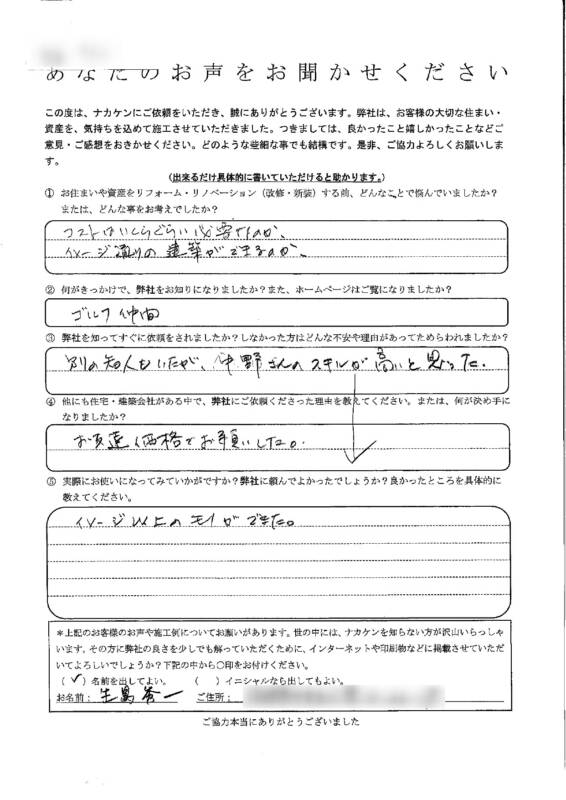 あなたのお声をお聞かせください
この度は、ナカケンにご依頼をいただき、誠にありがとうございます。弊社は、お客様の大切な住まい・
資産を、気持ちを込めて施工させていただきました。つきましては、良かったこと嬉しかったことなどご
意見・ご感想をおきかせください。どのような些細な事でも結構です。是非、ご協力よろしくお願いしま
す。
（出来るだけ具体的に書いていただけると助かります。）
① お住まいや資産をリフォーム・リノベーション（改修・新装）する前、どんなことで悩んでいましたか？
または、どんな事をお考えでしたか？
コストはいくらぐらい必要なのか、
イメージ通りの建築ができるのか、
② 何がきっかけで、弊社をお知りになりましたか？また、ホームページはご覧になりましたか？
ゴルフ仲間
③ 弊社を知ってすぐに依頼をされましたか？しなかった方はどんな不安や理由があってためらわれましたか？
別の知人もいたが、仲野さんのスキルが高いと思った。
④ 他にも住宅・建築会社がある中で、弊社にご依頼くださった理由を教えてください。または、何が決め手に
なりましたか？
お友達価格でお願いした。
⑤ 実際にお使いになってみていかがですか？弊社に頼んでよかったでしょうか？良かったところを具体的に
教えてください。
イメージ以上のモノができた。
＊上記のお客様のお声や施工例についてお願いがあります。世の中には、ナカケンを知らない方が沢山いらっしゃ
います。その方に弊社の良さを少しでも解っていただくために、インターネットや印刷物などに掲載させていただ
いてよろしいでしょうか？下記の中から○印をお付けください。
（✓）名前を出してよい。 （ ）イニシャルなら出してもよい。
お名前： 生島 一 ご住所：
ご協力本当にありがとうございました